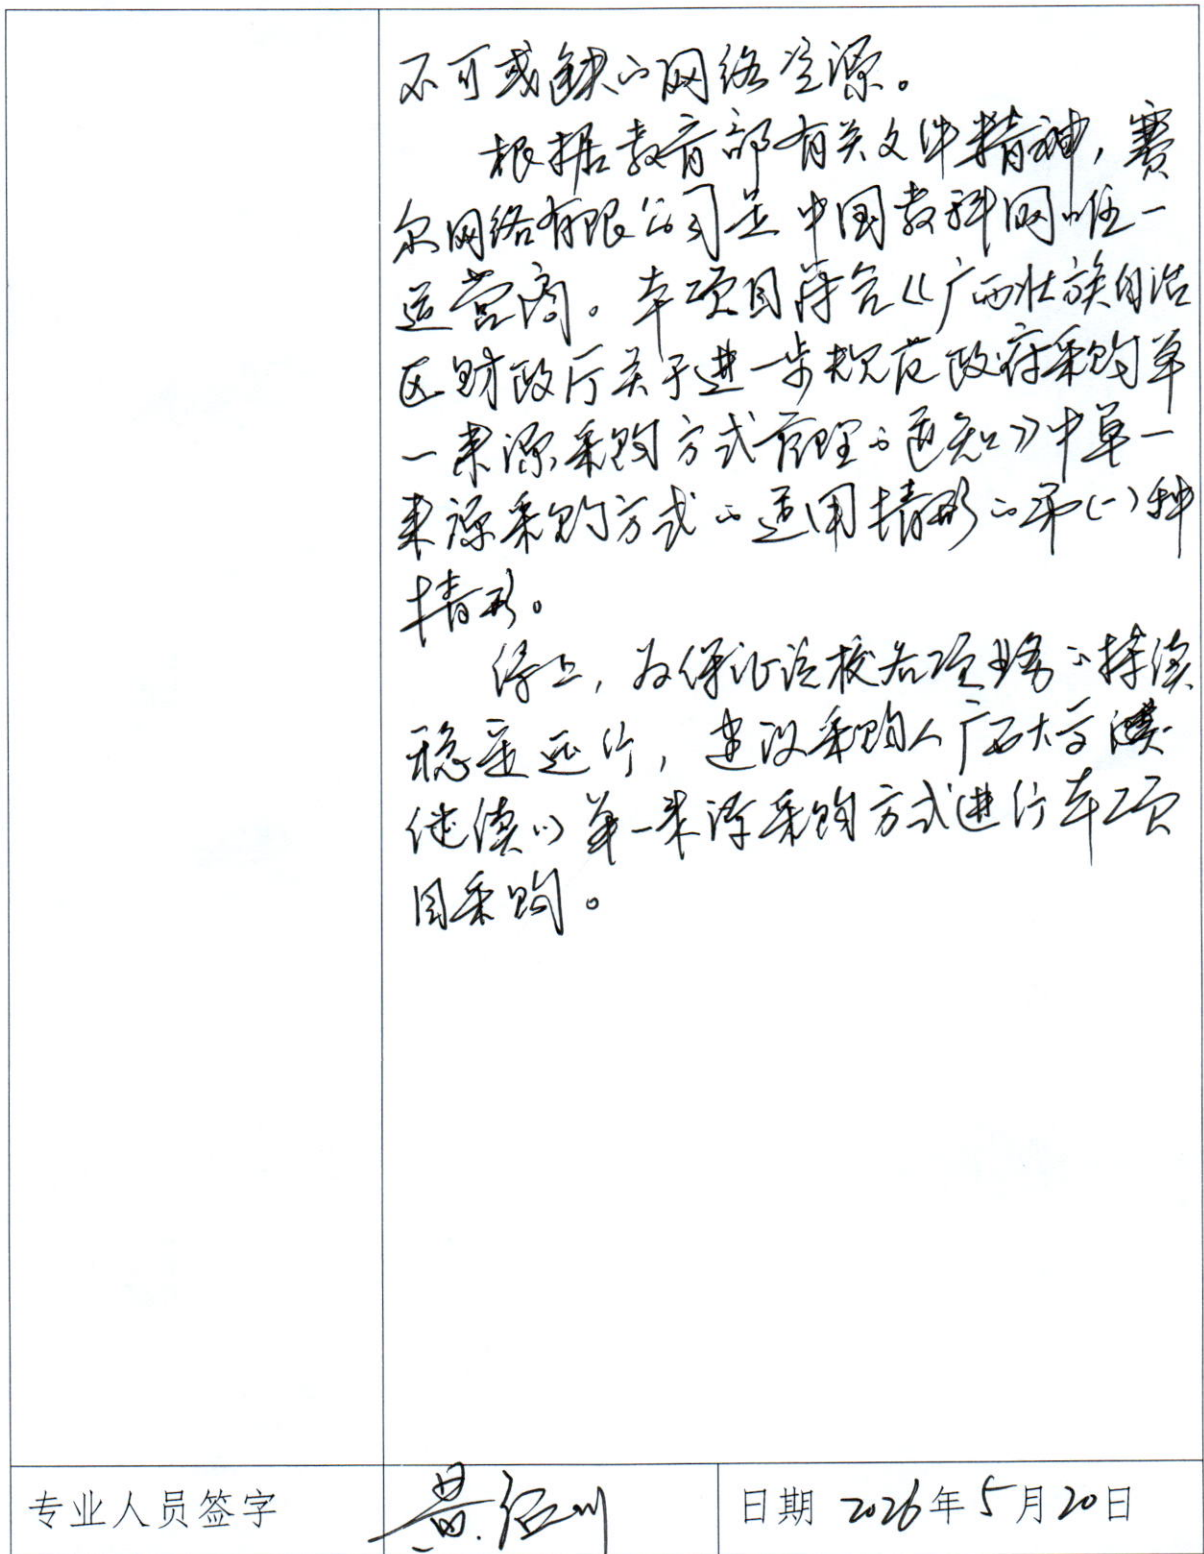 不可或缺的网络资源。
根据教育部有关文件精神,赛
尔网络有限公司是中国教科网唯一
运营商。本项目符合《广西壮族自治
区财政厅关于进一步规范政府采购单
一来源采购方式管理的通知》中单一
来源采购方式的适用情形的第(一)种
情形。
综上,为保证该校各项业务的持续
稳定运行,建议采购人广西大学
继续以单一来源采购方式进行本项
目采购。
专业人员签字
日期 2026年5月20日